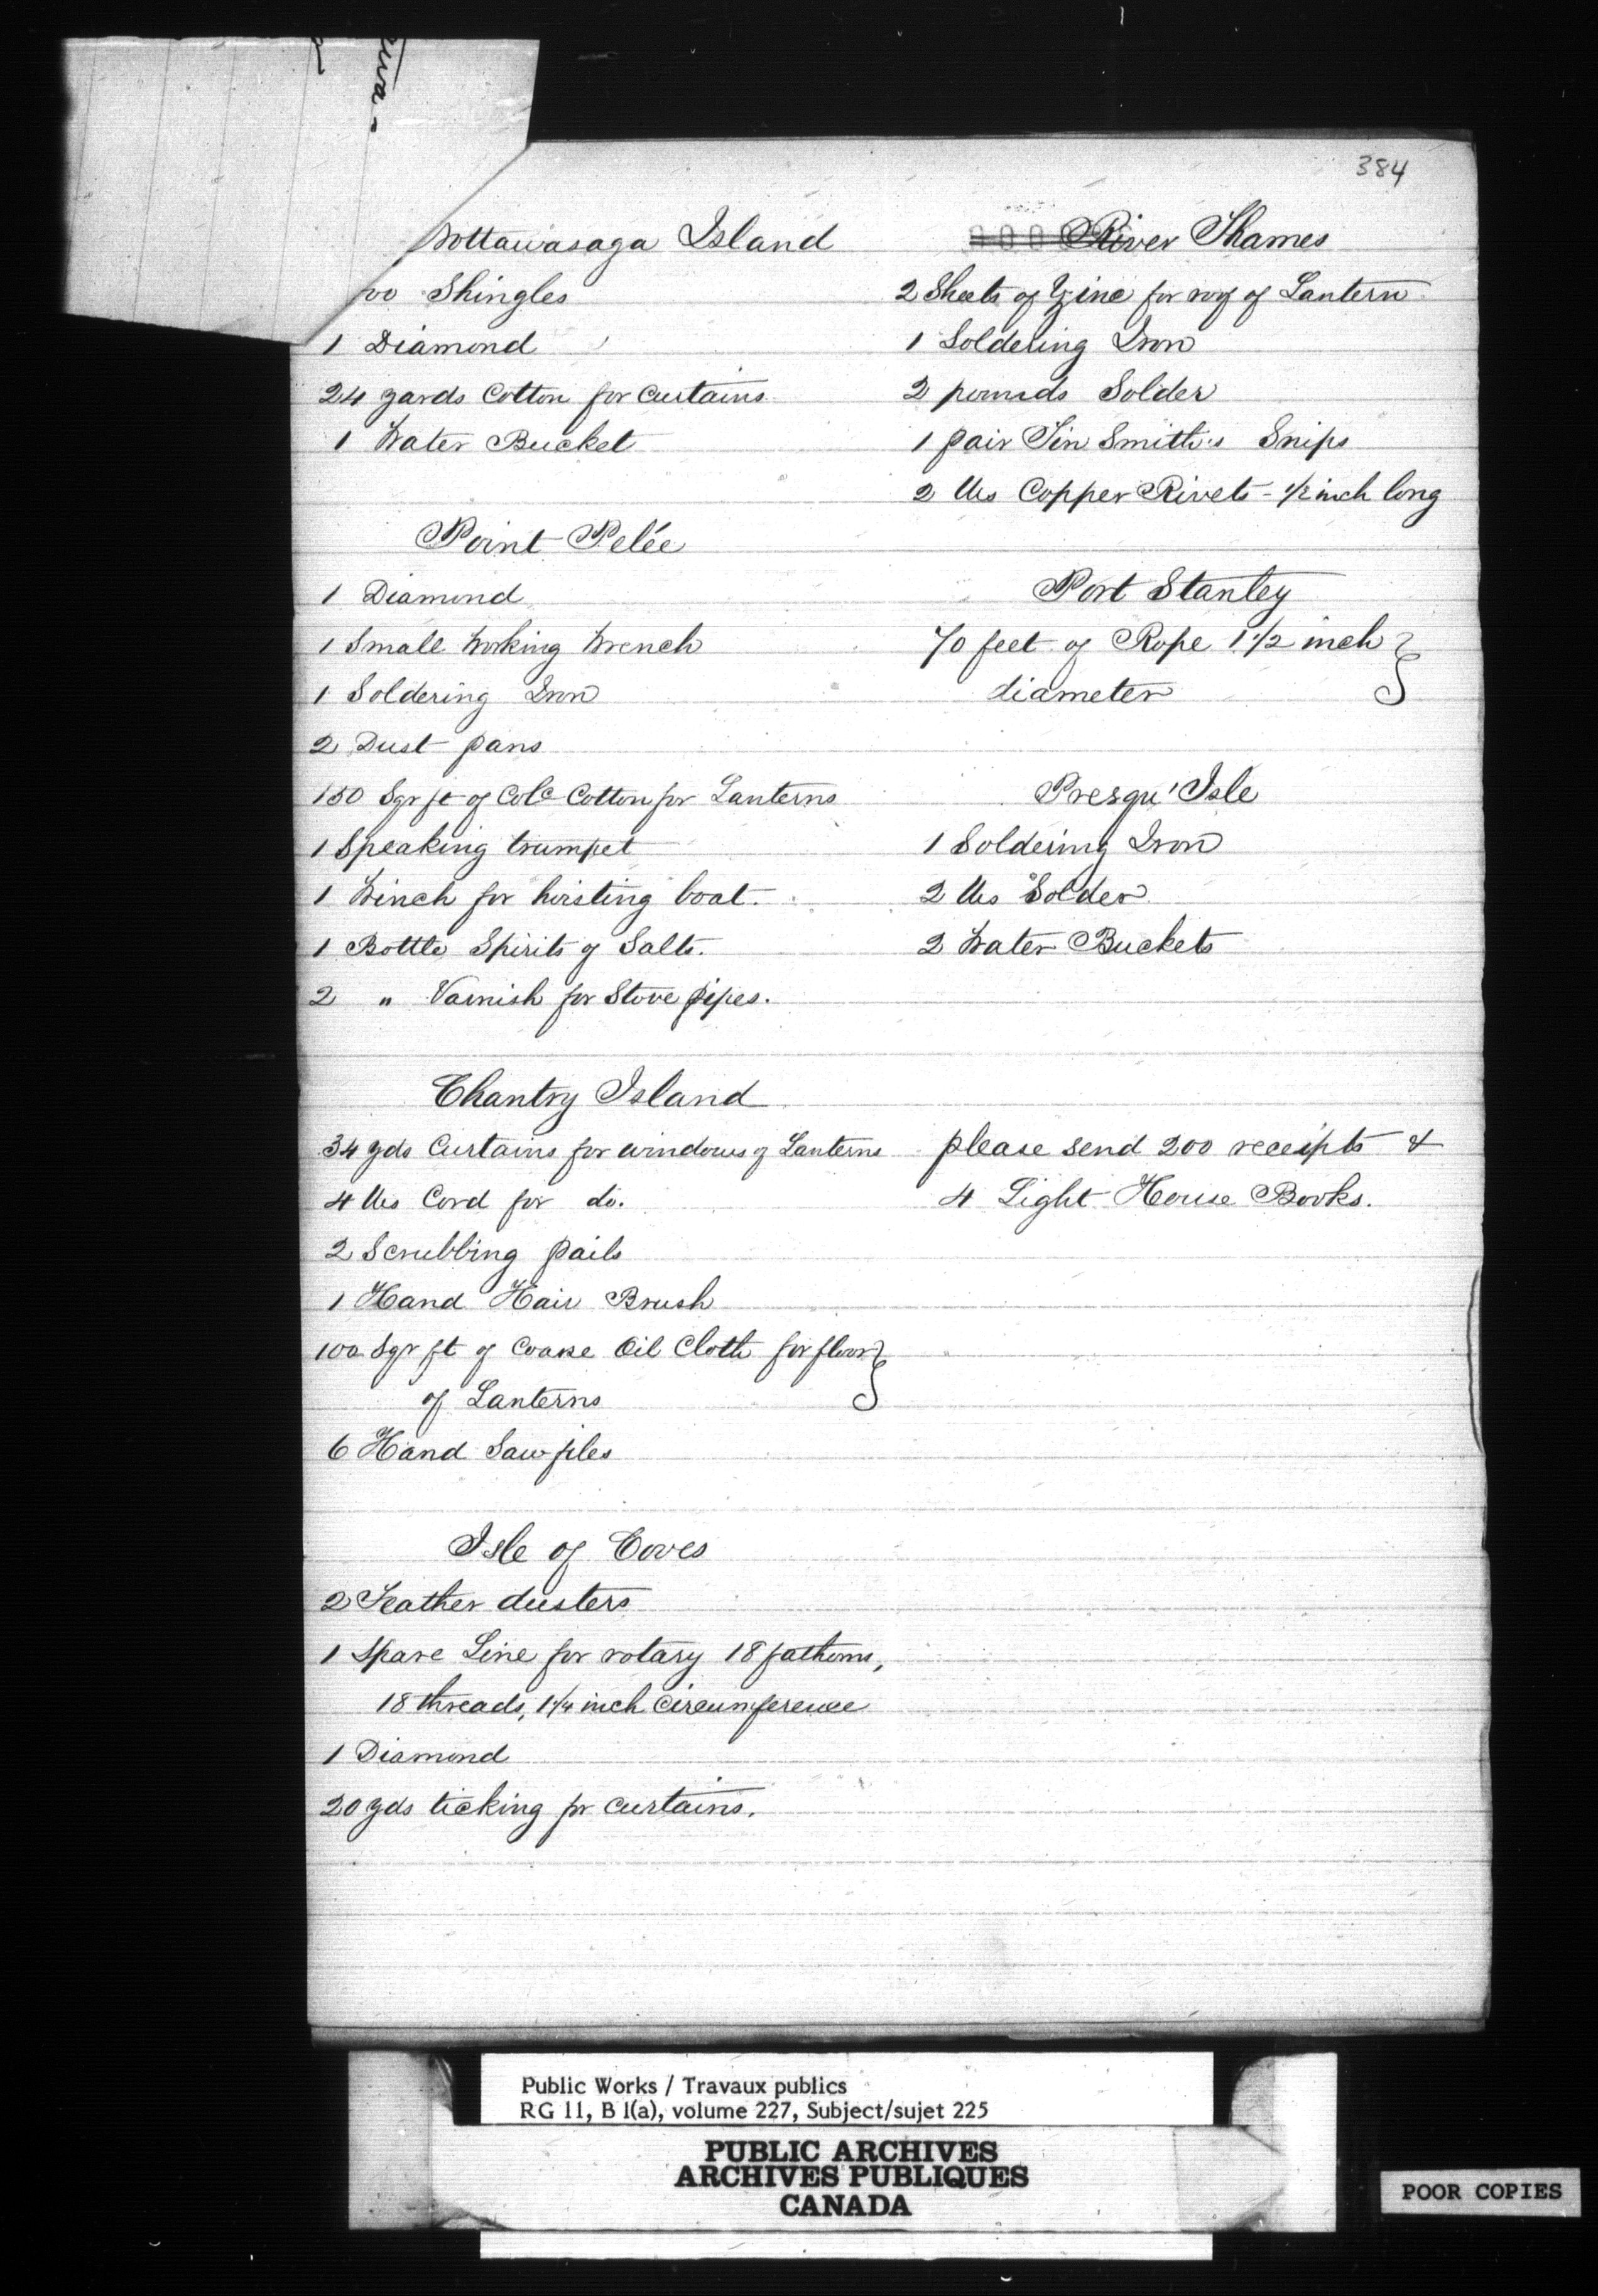 384
Nottawasaga Island
00 Shingles
1 Diamond
24 yards Cotton for Curtains
1 Water Bucket
Point Pelée
1 Diamond
1 Small Working Wrench
1 Soldering Iron
2 Dust pans
150 Sqr ft of Cold Cotton for Lanterns
1 Speaking trumpet
1 Winch for hoisting boat.
1 Bottle Spirits of Salts.
2 " Varnish for Stove pipes.
Chantry Island
34 yds Curtains for windows of Lanterns
4 lbs Cord for do.
2 Scrubbing pails
1 Hand Hair Brush
100 Sqr ft of Coarse Oil Cloth for floor
of Lanterns
6 Hand Saw files
Isle of Coves
2 Feather dusters
1 Spare Line for rotary 18 fathoms,
18 threads, 1 1/4 inch Circumference
1 Diamond
20 yds ticking for curtains.
River Thames
2 Sheets of Zinc for roof of Lantern
1 Soldering Iron
2 pounds Solder
1 pair Tin Smith's Snips
2 lbs Copper Rivets - 1/2 inch long
Port Stanley
70 feet of Rope 1 1/2 inch
diameter
Presqu'Isle
1 Soldering Iron
2 lbs Solder
2 Water Buckets
please send 200 receipts &
4 Light House Books.
Public Works / Travaux publics
RG 11, B 1(a), volume 227, Subject/sujet 225
PUBLIC ARCHIVES
ARCHIVES PUBLIQUES
CANADA
POOR COPIES